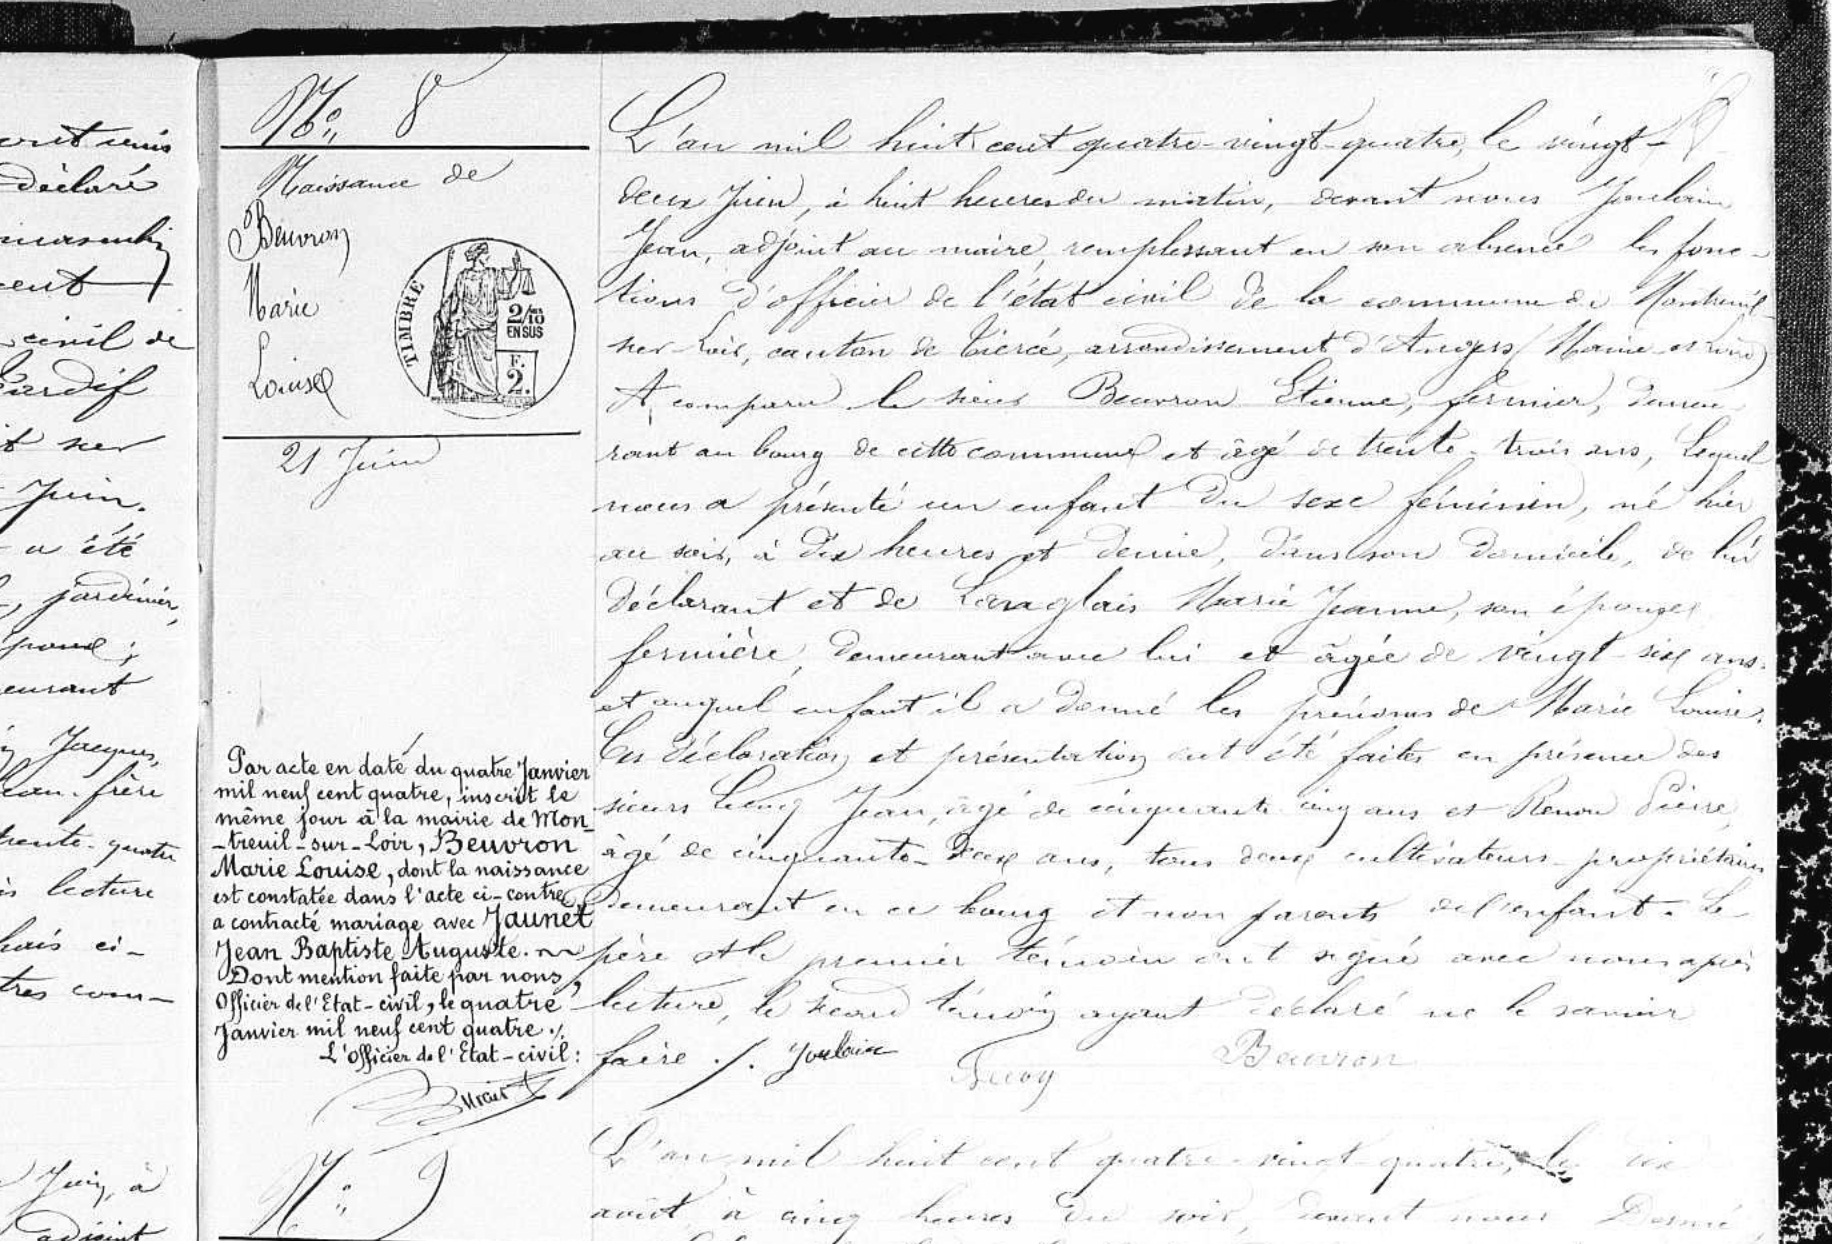 crit sur
déclaré
masculin
cent
civil de
Tardif
it sur
Juin.
a été
jardinier,
pouse;
eurant
Jacques,
beau-frère
trente-quatre
ès lecture
hais ci-
tres com-
Juin, à
adjoint
No. 8
Naissance de
Beuvron
Marie
Louise
TIMBRE
2/10 EN SUS
F. 2.
21 Juin
Par acte en date du quatre Janvier
mil neuf cent quatre, inscrit le
même jour à la mairie de Mon-
-treuil-sur-Loir, Beuvron
Marie Louise, dont la naissance
est constatée dans l'acte ci-contre,
a contracté mariage avec Jaunet
Jean Baptiste Auguste.
Dont mention faite par nous,
Officier de l'Etat-civil, le quatre
Janvier mil neuf cent quatre ./.
L'Officier de l'Etat-civil:
L'an mil huit cent quatre-vingt-quatre, le vingt-
deux Juin, à huit heures du matin, devant nous Joulain
Jean, adjoint au maire, remplissant en son absence les fonc-
tions d'officier de l'état civil de la commune de Montreuil-
sur-Loir, canton de Tiercé, arrondissement d'Angers (Maine-et-Loire)
A comparu le sieur Beuvron Etienne, fermier, demeu
rant au bourg de cette commune et âgé de trente-trois ans, Lequel
nous a présenté un enfant du sexe féminin, né hier
au soir, à dix heures et demie, dans son domicile, de lui
déclarant et de Langlais Marie Jeanne, son épouse,
fermière, demeurant avec lui et âgée de vingt-six ans.
et auquel enfant il a donné les prénoms de Marie Louise.
Ces déclaration et présentation ont été faites en présence des
sieurs Lucoy Jean, âgé de cinquante-cinq ans et Renou Pierre,
âgé de cinquante-deux ans, tous deux cultivateurs-propriétaires
demeurant en ce bourg et non parents de l'enfant. Le
père et le premier témoin ont signé avec nous après
lecture, le second témoin ayant déclaré ne le savoir
faire ./. Joulain
Lucoy Beuvron
No. 9
L'an mil huit cent quatre-vingt-quatre, le six
août, à cinq heures du soir, devant nous